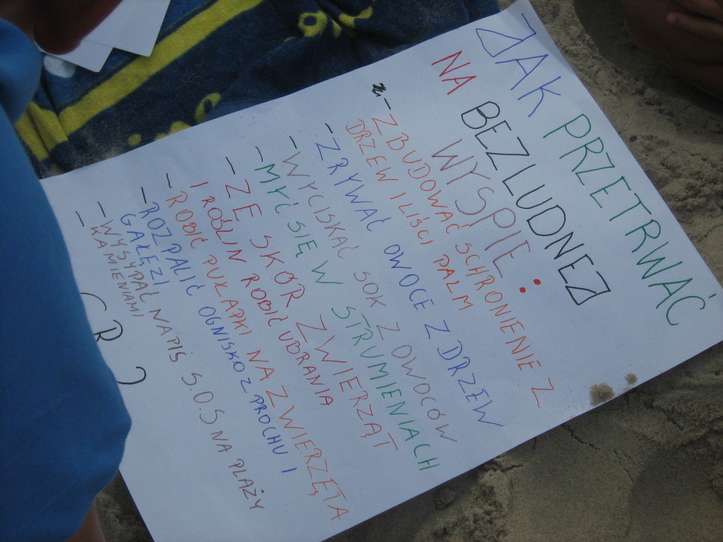 JAK PRZETRWAĆ
NA BEZLUDNEJ
WYSPIE:
- ZBUDOWAĆ SCHRONIENIE Z
DRZEW I LIŚCI PALM
- ZRYWAĆ OWOCE Z DRZEW
- WYCISKAĆ SOK Z OWOCÓW
- MYĆ SIĘ W STRUMIENIACH
- ZE SKÓR ZWIERZĄT
I ROŚLIN ROBIĆ UBRANIA
- ROBIĆ PUŁAPKI NA ZWIERZĘTA
- ROZPALIĆ OGNISKO Z PROCHU I
GAŁĘZI
- WYSYPAĆ NAPIS S.O.S NA PLAŻY
KAMIENIAMI
-